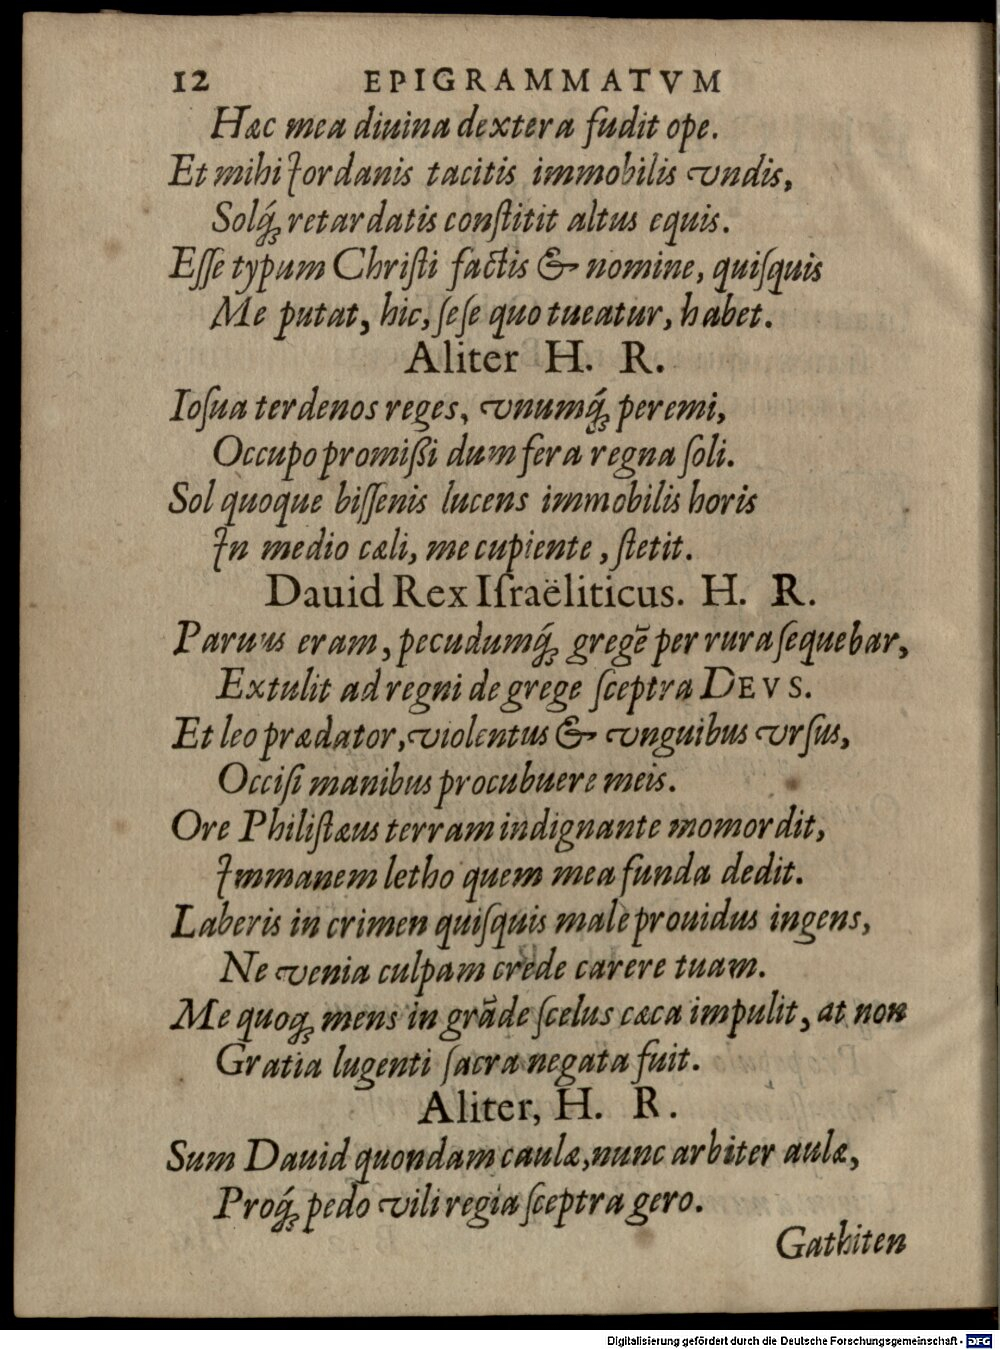 12 EPIGRAMMATVM
Hæc mea diuina dextera fudit ope.
Et mihi Iordanis tacitis immobilis vndis,
Solq́; retardatis conſtitit altus equis.
Eſſe typum Chriſti factis & nomine, quiſquis
Me putat, hic, ſeſe quo tueatur, habet.
Aliter H. R.
Ioſua terdenos reges, vnumq́; peremi,
Occupo promißi dum fera regna ſoli.
Sol quoque biſſenis lucens immobilis horis
In medio cæli, me cupiente, ſtetit.
Dauid Rex Iſraëliticus. H. R.
Paruus eram, pecudumq́; gregẽ per rura ſequebar,
Extulit ad regni de grege ſceptra DEVS.
Et leo prædator, violentus & vnguibus vrſus,
Occiſi manibus procubuere meis.
Ore Philiſtæus terram indignante momordit,
Immanem letho quem mea funda dedit.
Laberis in crimen quiſquis malè prouidus ingens,
Ne venia culpam crede carere tuam.
Me quoq; mens in grãde ſcelus cæca impulit, at non
Gratia lugenti ſacra negata fuit.
Aliter, H. R.
Sum Dauid quondam caulæ, nunc arbiter aulæ,
Proq́; pedo vili regia ſceptra gero.
Gathiten
Digitalisierung gefördert durch die Deutsche Forschungsgemeinschaft - DFG